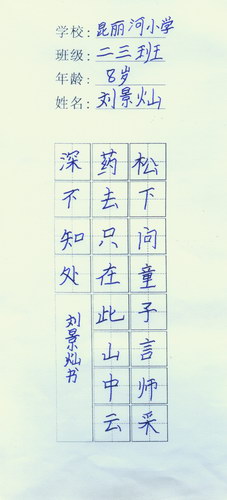 学校：昆丽河小学
班级：二三班
年龄：8岁
姓名：刘景灿
松下问童子言师采
药去只在此山中云
深不知处
刘景灿书